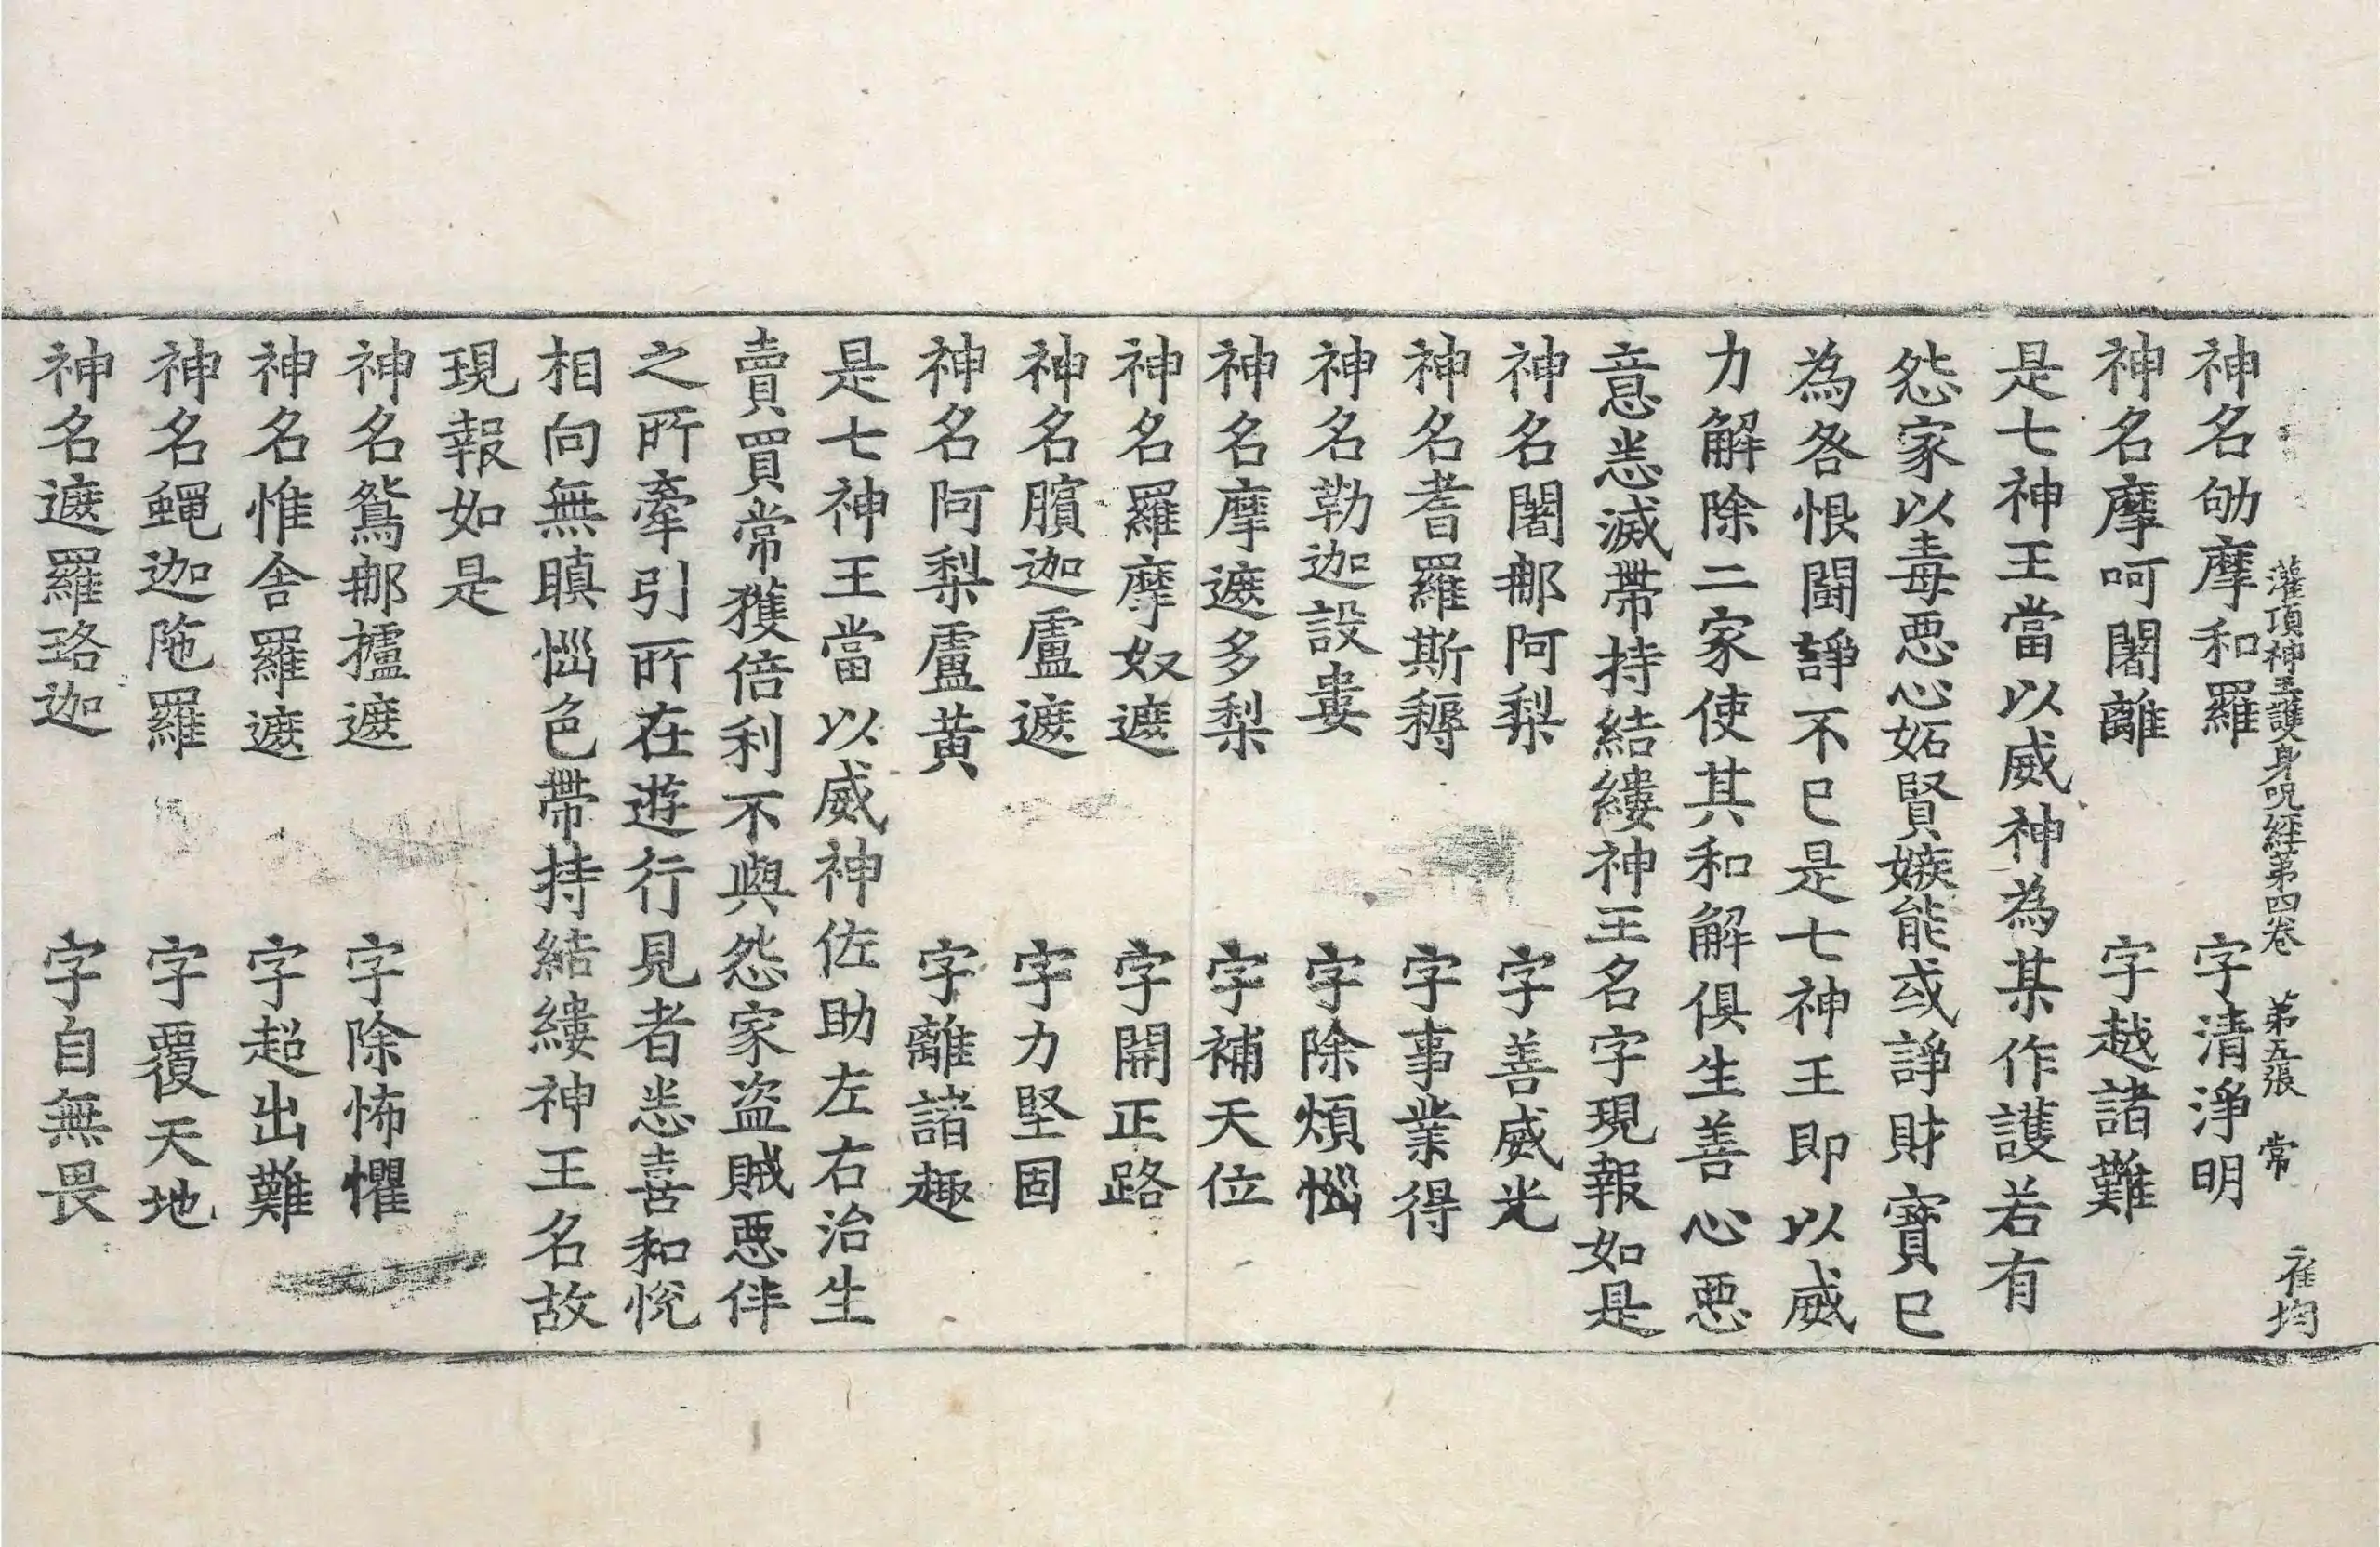 灌頂神王護身呪經第四卷　第五張　常　崔均
神名劬摩和羅　字清淨明
神名摩呵闍離　字越諸難
是七神王當以威神為某作護若有
怨家以毒惡心妬賢嫉能或諍財寶已
為各恨鬪諍不已是七神王即以威
力解除二家使其和解俱生善心惡
意悉滅帶持結縷神王名字現報如是
神名闍那阿梨　字善威光
神名耆羅斯耨　字事業得
神名勒迦設婁　字除煩惱
神名摩遮多梨　字補天位
神名羅摩奴遮　字開正路
神名臏迦盧遮　字力堅固
神名阿梨盧黃　字離諸趣
是七神王當以威神佐助左右治生
賣買常獲倍利不與怨家盜賊惡伴
之所牽引所在遊行見者悉喜和悅
相向無瞋惱色帶持結縷神王名故
現報如是
神名鴛那攎遮　字除怖懼
神名惟舍羅遮　字超出難
神名蠅迦陁羅　字覆天地
神名遮羅珞迦　字自無畏